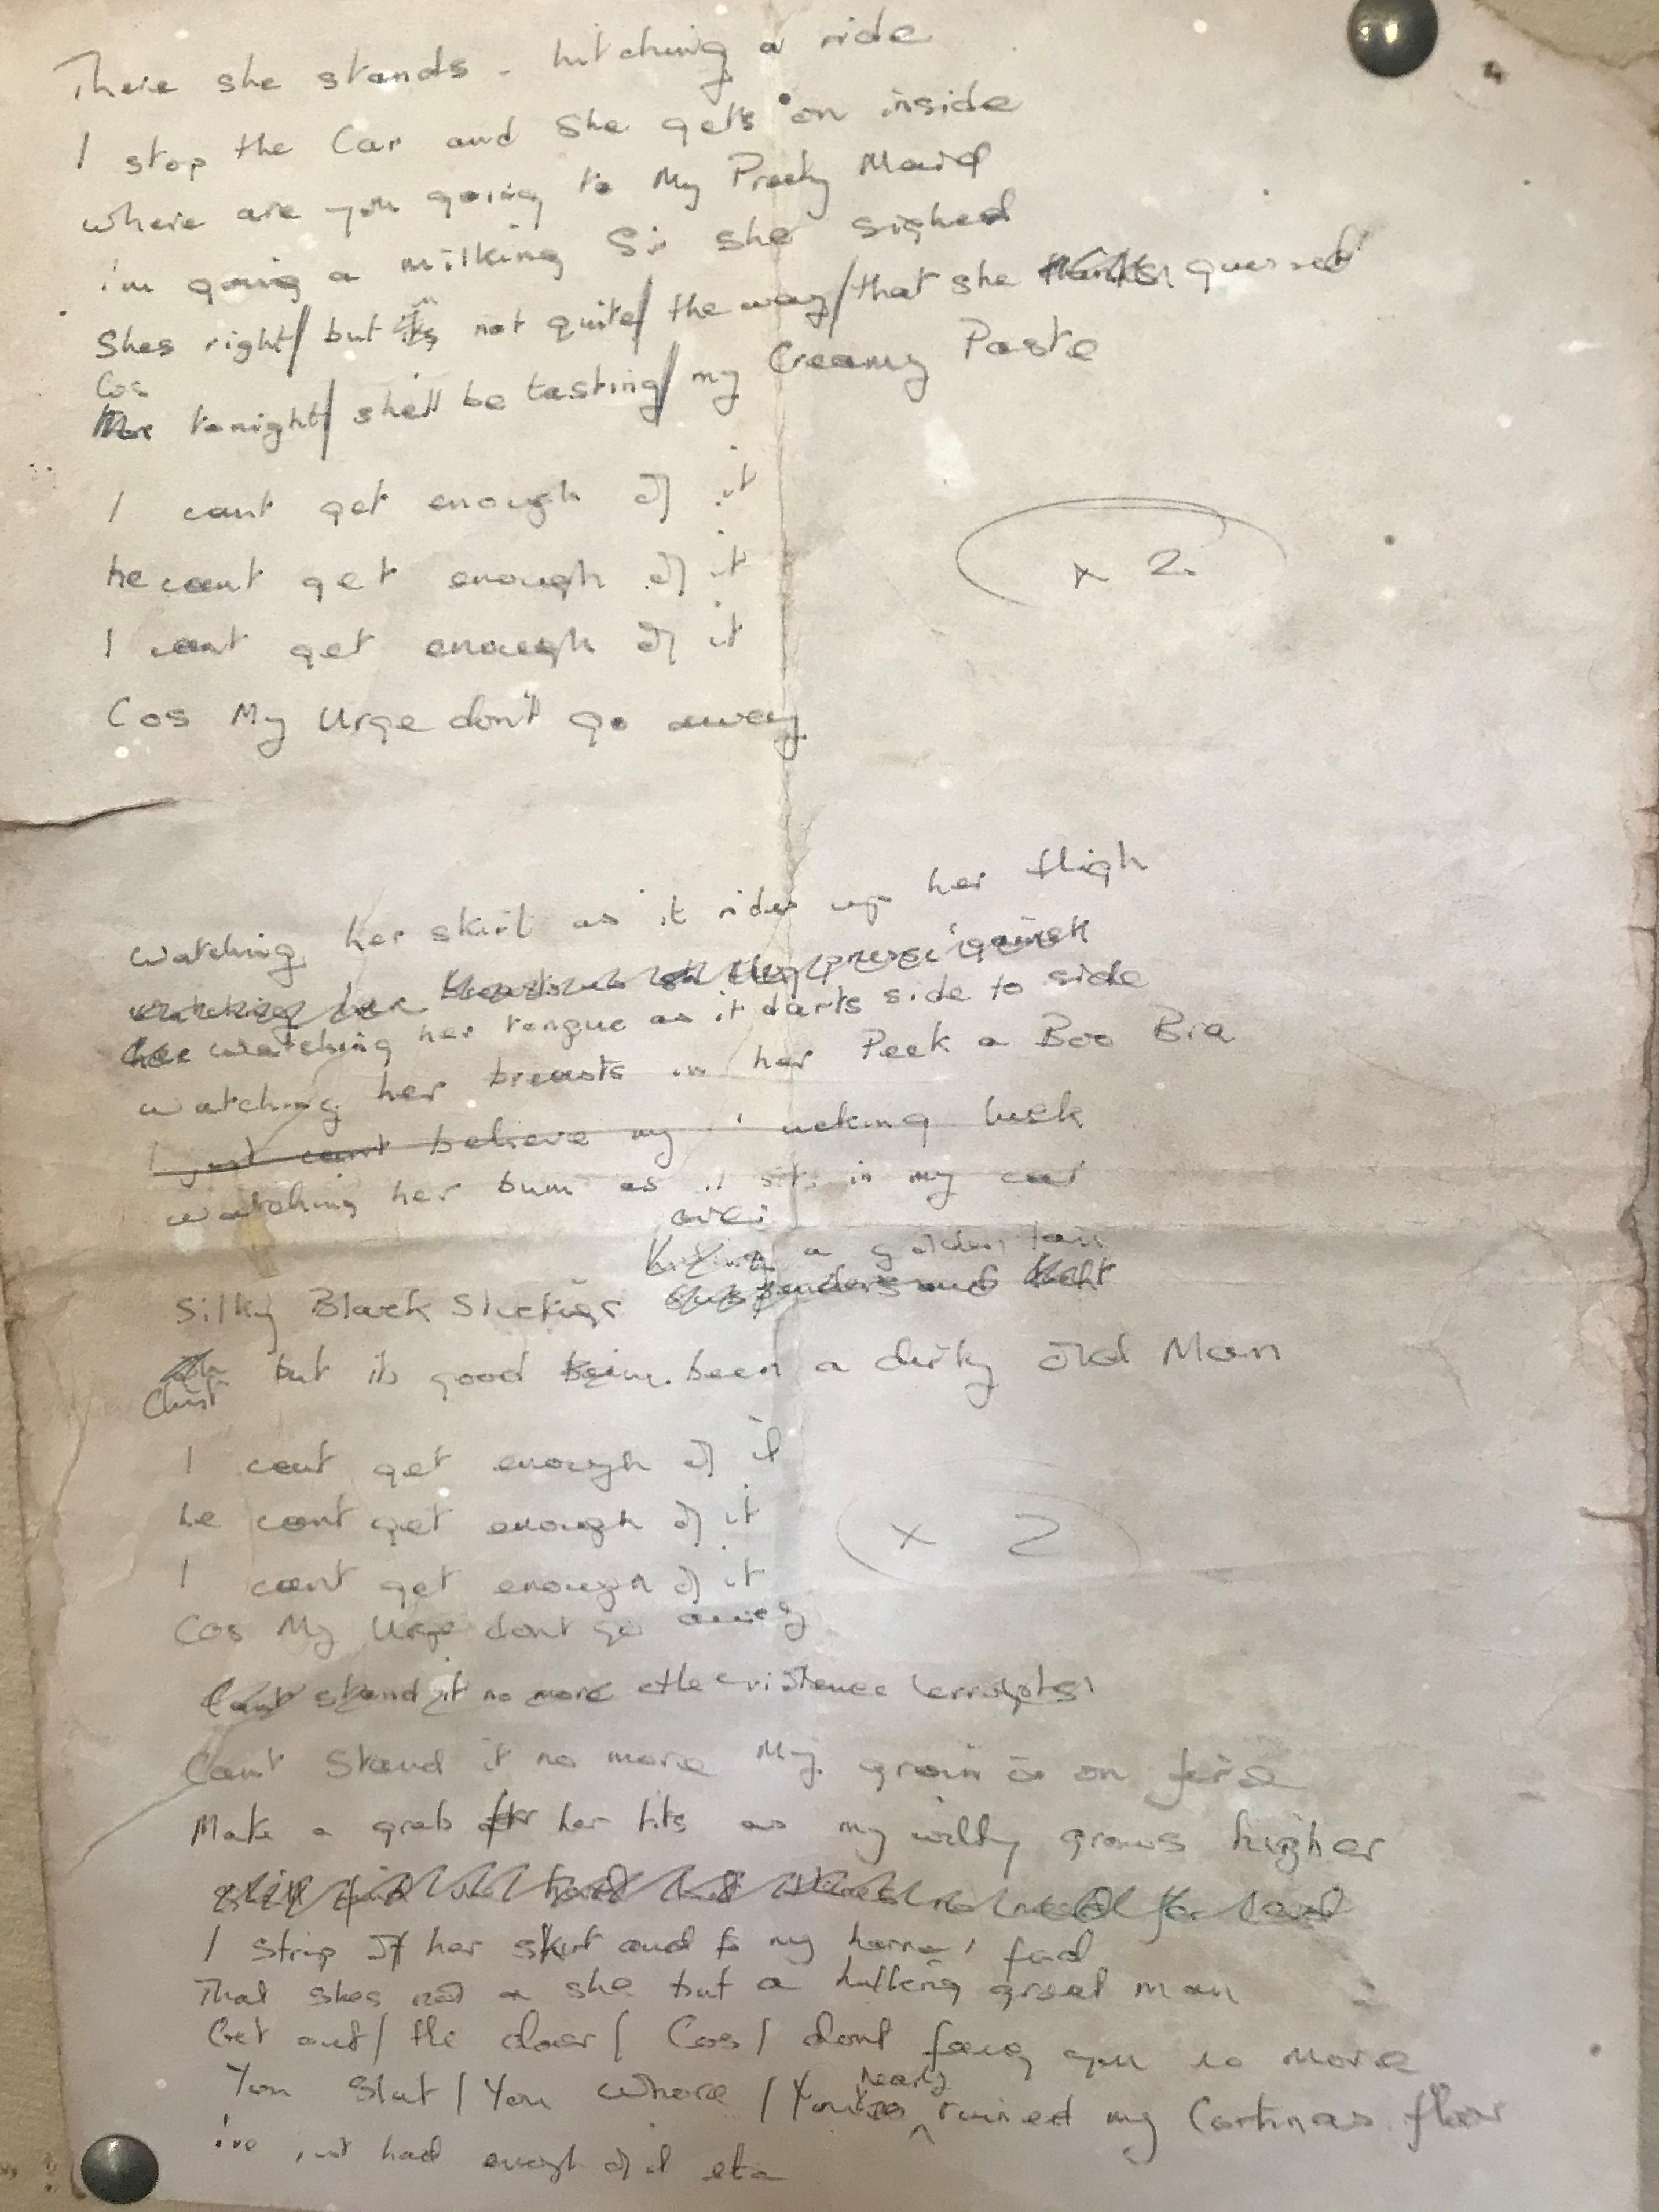 There she stands - hitching a ride
I stop the Car and she gets on inside
where are you going to My Pretty Maid
i'm going a milking Sir she sighed
Shes right/ but its not quite/ the way/ that she guessed
Cos
tonight/ she'll be tasting/ my Creamy Paste
I cant get enough of it
he cant get enough of it
x 2.
I cant get enough of it
Cos My Urge don't go away
watching her skirt as it rides up her thigh
watching her press against
her watching her tongue as it darts side to side
watching her breasts in her Peek a Boo Bra
I just cant believe my ucking luck
watching her bum as it sits in my car
over
a golden tan
Silky Black Stockings suspenders and belt
but its good being been a dirty old Man
Christ
I cant get enough of it
he cant get enough of it
x 2
I cant get enough of it
Cos My Urge dont go away
Cant stand it no more
Cant Stand it no more My groin is on fire
Make a grab for her tits as my willy grows higher
no need for
I strip off her skirt and to my horror I find
That shes not a she but a hulking great man
Get out/ the door/ Cos I dont fancy you no more
nearly
You Slut / You whore / You ruined my Cortinas floor
i've just had enough of it etc